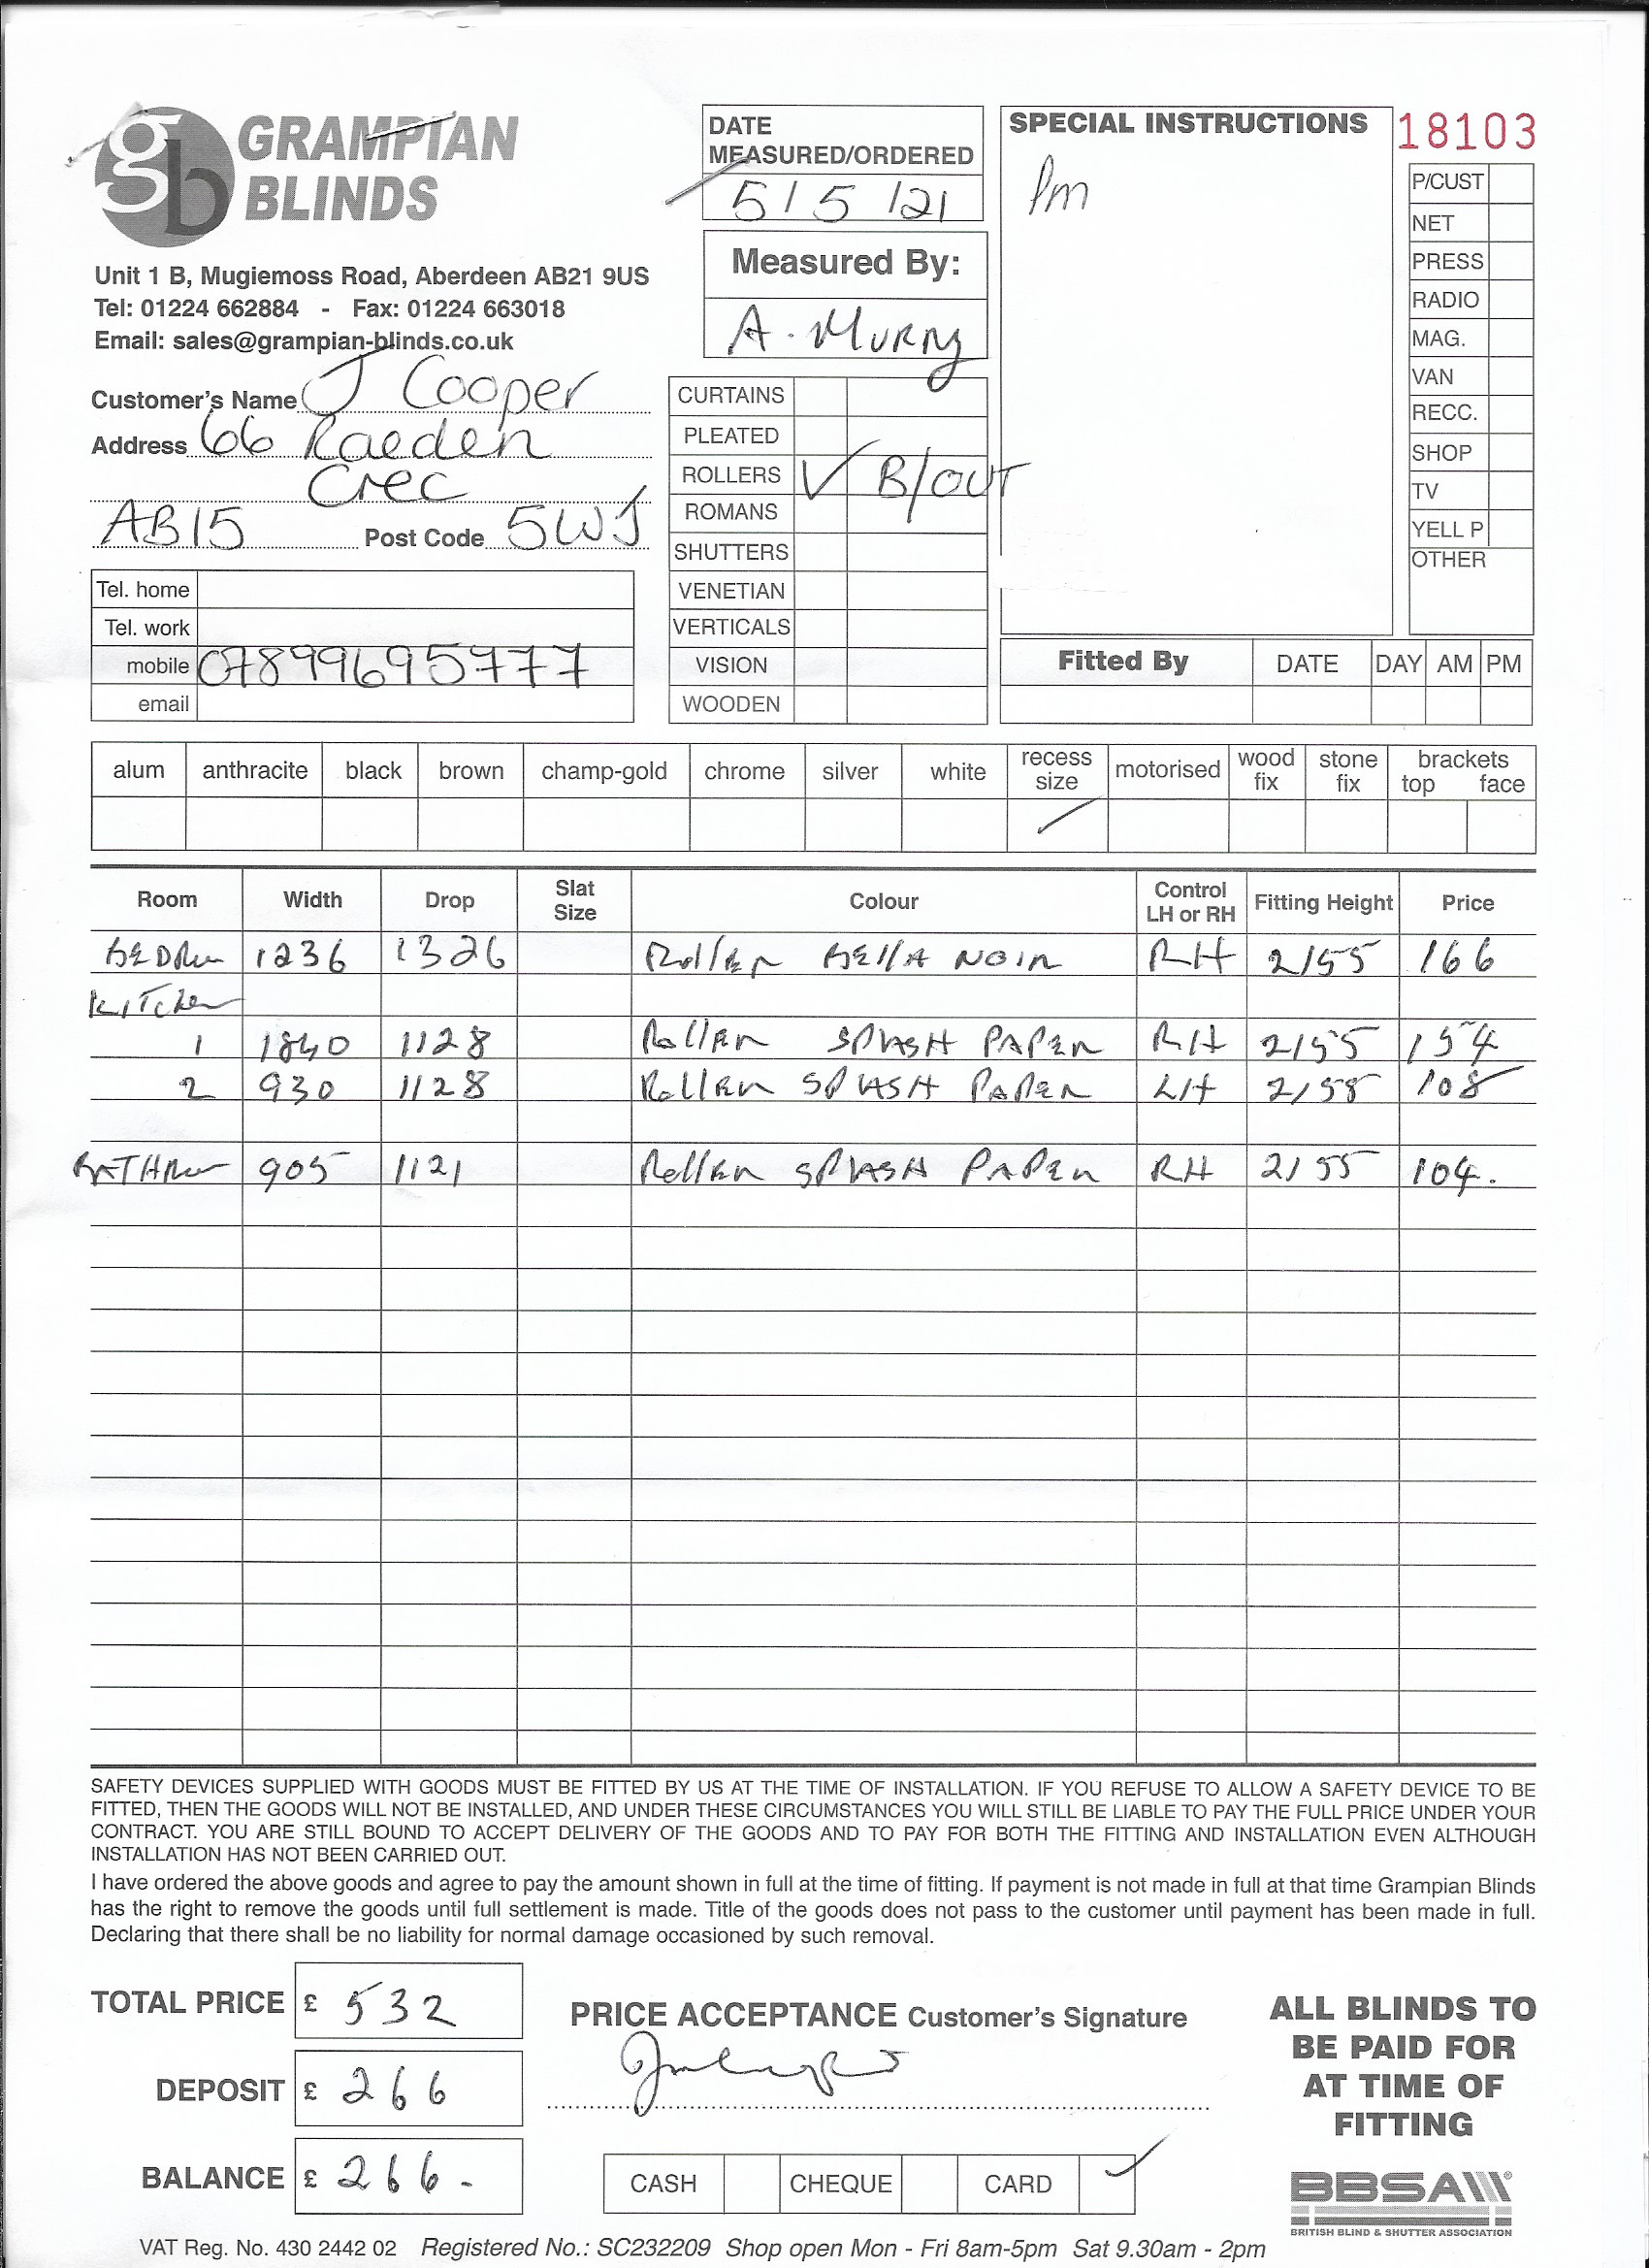 GRAMPIAN
BLINDS
Unit 1 B, Mugiemoss Road, Aberdeen AB21 9US
Tel: 01224 662884 - Fax: 01224 663018
Email: sales@grampian-blinds.co.uk
Customer's Name J Cooper
Address 66 Raeden
Crec
AB15 Post Code 5WJ
Tel. home
Tel. work
mobile 07899695777
email
DATE
MEASURED/ORDERED
5/5/21
Measured By:
A. Murray
CURTAINS
PLEATED
ROLLERS ✓ B/OUT
ROMANS
SHUTTERS
VENETIAN
VERTICALS
VISION
WOODEN
SPECIAL INSTRUCTIONS
Pm
18103
P/CUST
NET
PRESS
RADIO
MAG.
VAN
RECC.
SHOP
TV
YELL P
OTHER
Fitted By DATE DAY AM PM
alum anthracite black brown champ-gold chrome silver white recess size motorised wood fix stone fix brackets top face
✓
Room Width Drop Slat Size Colour Control LH or RH Fitting Height Price
BEDRM 1236 1326 Roller BELLA NOIR RH 2155 166
KITchen
1 1840 1128 Roller SPLASH PAPER RH 2155 154
2 930 1128 Roller SPLASH PAPER LH 2155 108
BATHRM 905 1121 Roller SPLASH PAPER RH 2155 104.
SAFETY DEVICES SUPPLIED WITH GOODS MUST BE FITTED BY US AT THE TIME OF INSTALLATION. IF YOU REFUSE TO ALLOW A SAFETY DEVICE TO BE
FITTED, THEN THE GOODS WILL NOT BE INSTALLED, AND UNDER THESE CIRCUMSTANCES YOU WILL STILL BE LIABLE TO PAY THE FULL PRICE UNDER YOUR
CONTRACT. YOU ARE STILL BOUND TO ACCEPT DELIVERY OF THE GOODS AND TO PAY FOR BOTH THE FITTING AND INSTALLATION EVEN ALTHOUGH
INSTALLATION HAS NOT BEEN CARRIED OUT.
I have ordered the above goods and agree to pay the amount shown in full at the time of fitting. If payment is not made in full at that time Grampian Blinds
has the right to remove the goods until full settlement is made. Title of the goods does not pass to the customer until payment has been made in full.
Declaring that there shall be no liability for normal damage occasioned by such removal.
TOTAL PRICE £ 532
DEPOSIT £ 266
BALANCE £ 266.
PRICE ACCEPTANCE Customer's Signature
CASH CHEQUE CARD ✓
ALL BLINDS TO
BE PAID FOR
AT TIME OF
FITTING
BBSA
BRITISH BLIND & SHUTTER ASSOCIATION
VAT Reg. No. 430 2442 02 Registered No.: SC232209 Shop open Mon - Fri 8am-5pm Sat 9.30am - 2pm